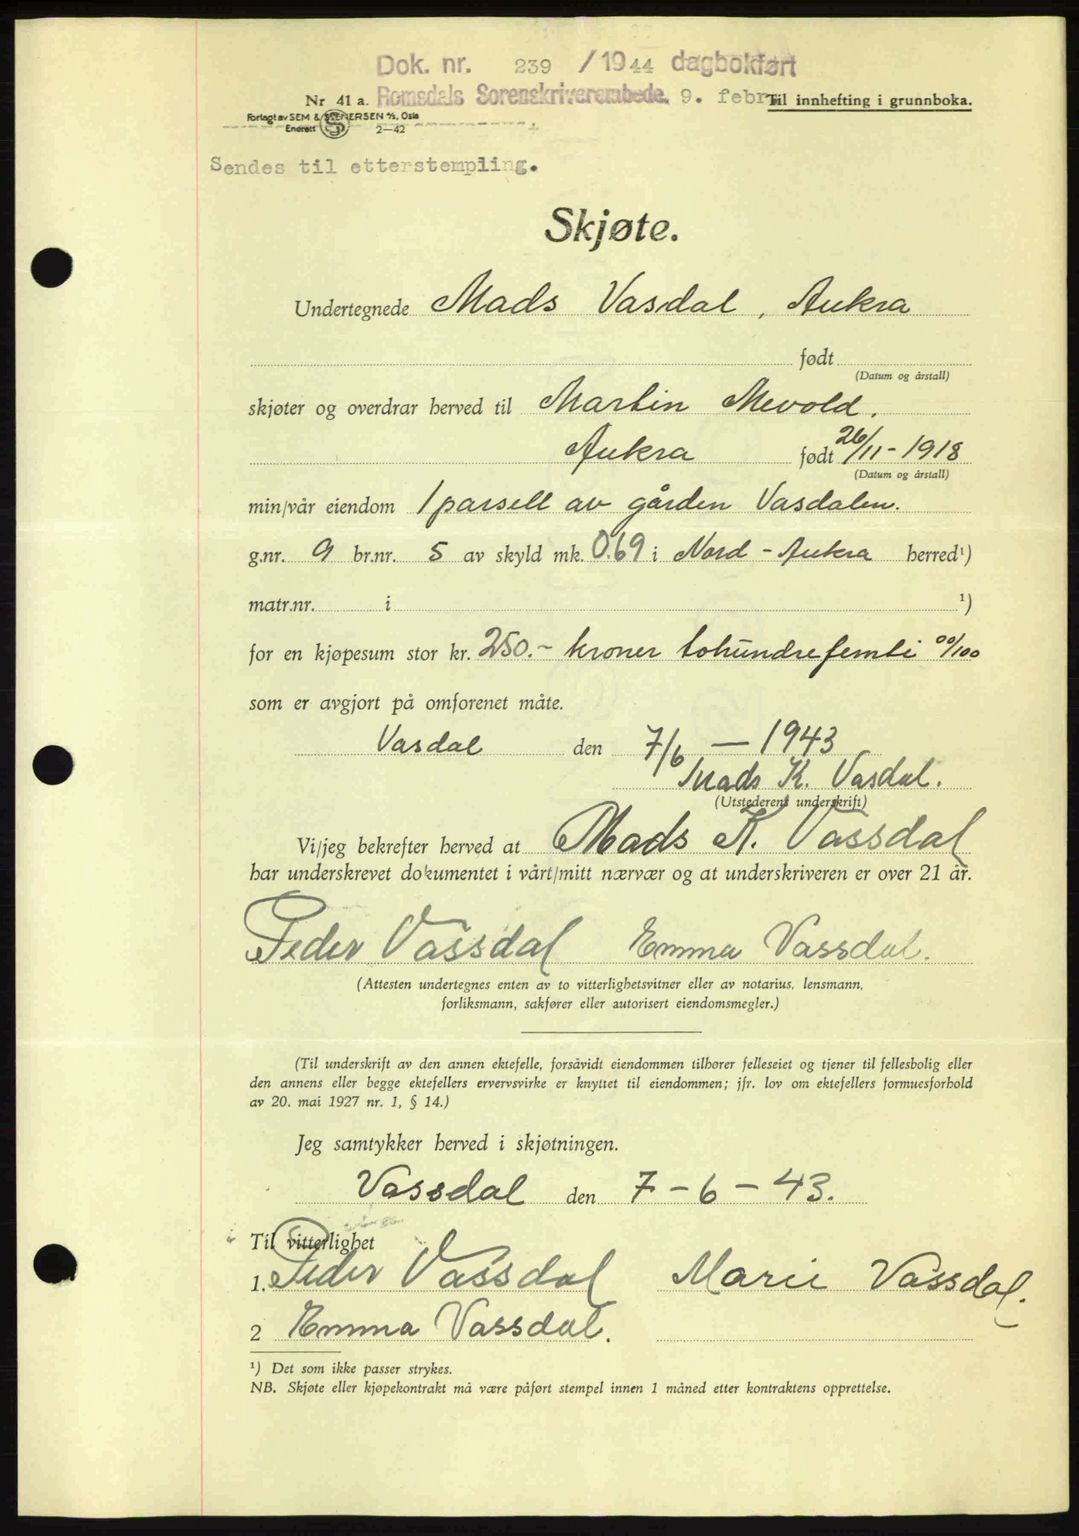 Dok. nr. 239 / 1944 dagbokført
Nr 41 a. Romsdals Sorenskriverembede. 9. febr. Til innhefting i grunnboka.
Forlagt av SEM & STENERSEN A/S, Oslo
Enerett 2—42
Sendes til etterstempling.
Skjøte.
Undertegnede Mads Vasdal, Aukra
født
(Datum og årstall)
skjøter og overdrar herved til Martin Mevold.
Aukra født 26/11-1918
(Datum og årstall)
min/vår eiendom 1 parsell av gården Vasdalen.
g.nr. 9 br.nr. 5 av skyld mk. 0.69 i Nord-Aukra herred¹)
matr.nr. i ¹)
for en kjøpesum stor kr. 250.- kroner tohundrefemti 00/100
som er avgjort på omforenet måte.
Vasdal den 7/6 — 1943
Mads K. Vasdal.
(Utstederens underskrift)
Vi/jeg bekrefter herved at Mads K. Vassdal
har underskrevet dokumentet i vårt/mitt nærvær og at underskriveren er over 21 år.
Peder Vassdal Emma Vassdal.
(Attesten undertegnes enten av to vitterlighetsvitner eller av notarius, lensmann,
forliksmann, sakfører eller autorisert eiendomsmegler.)
(Til underskrift av den annen ektefelle, forsåvidt eiendommen tilhører felleseiet og tjener til fellesbolig eller
den annens eller begge ektefellers ervervsvirke er knyttet til eiendommen; jfr. lov om ektefellers formuesforhold
av 20. mai 1927 nr. 1, § 14.)
Jeg samtykker herved i skjøtningen.
Vassdal den 7-6-43.
Til vitterlighet
1. Peder Vassdal Marie Vassdal.
2 Emma Vassdal.
¹) Det som ikke passer strykes.
NB. Skjøte eller kjøpekontrakt må være påført stempel innen 1 måned etter kontraktens opprettelse.